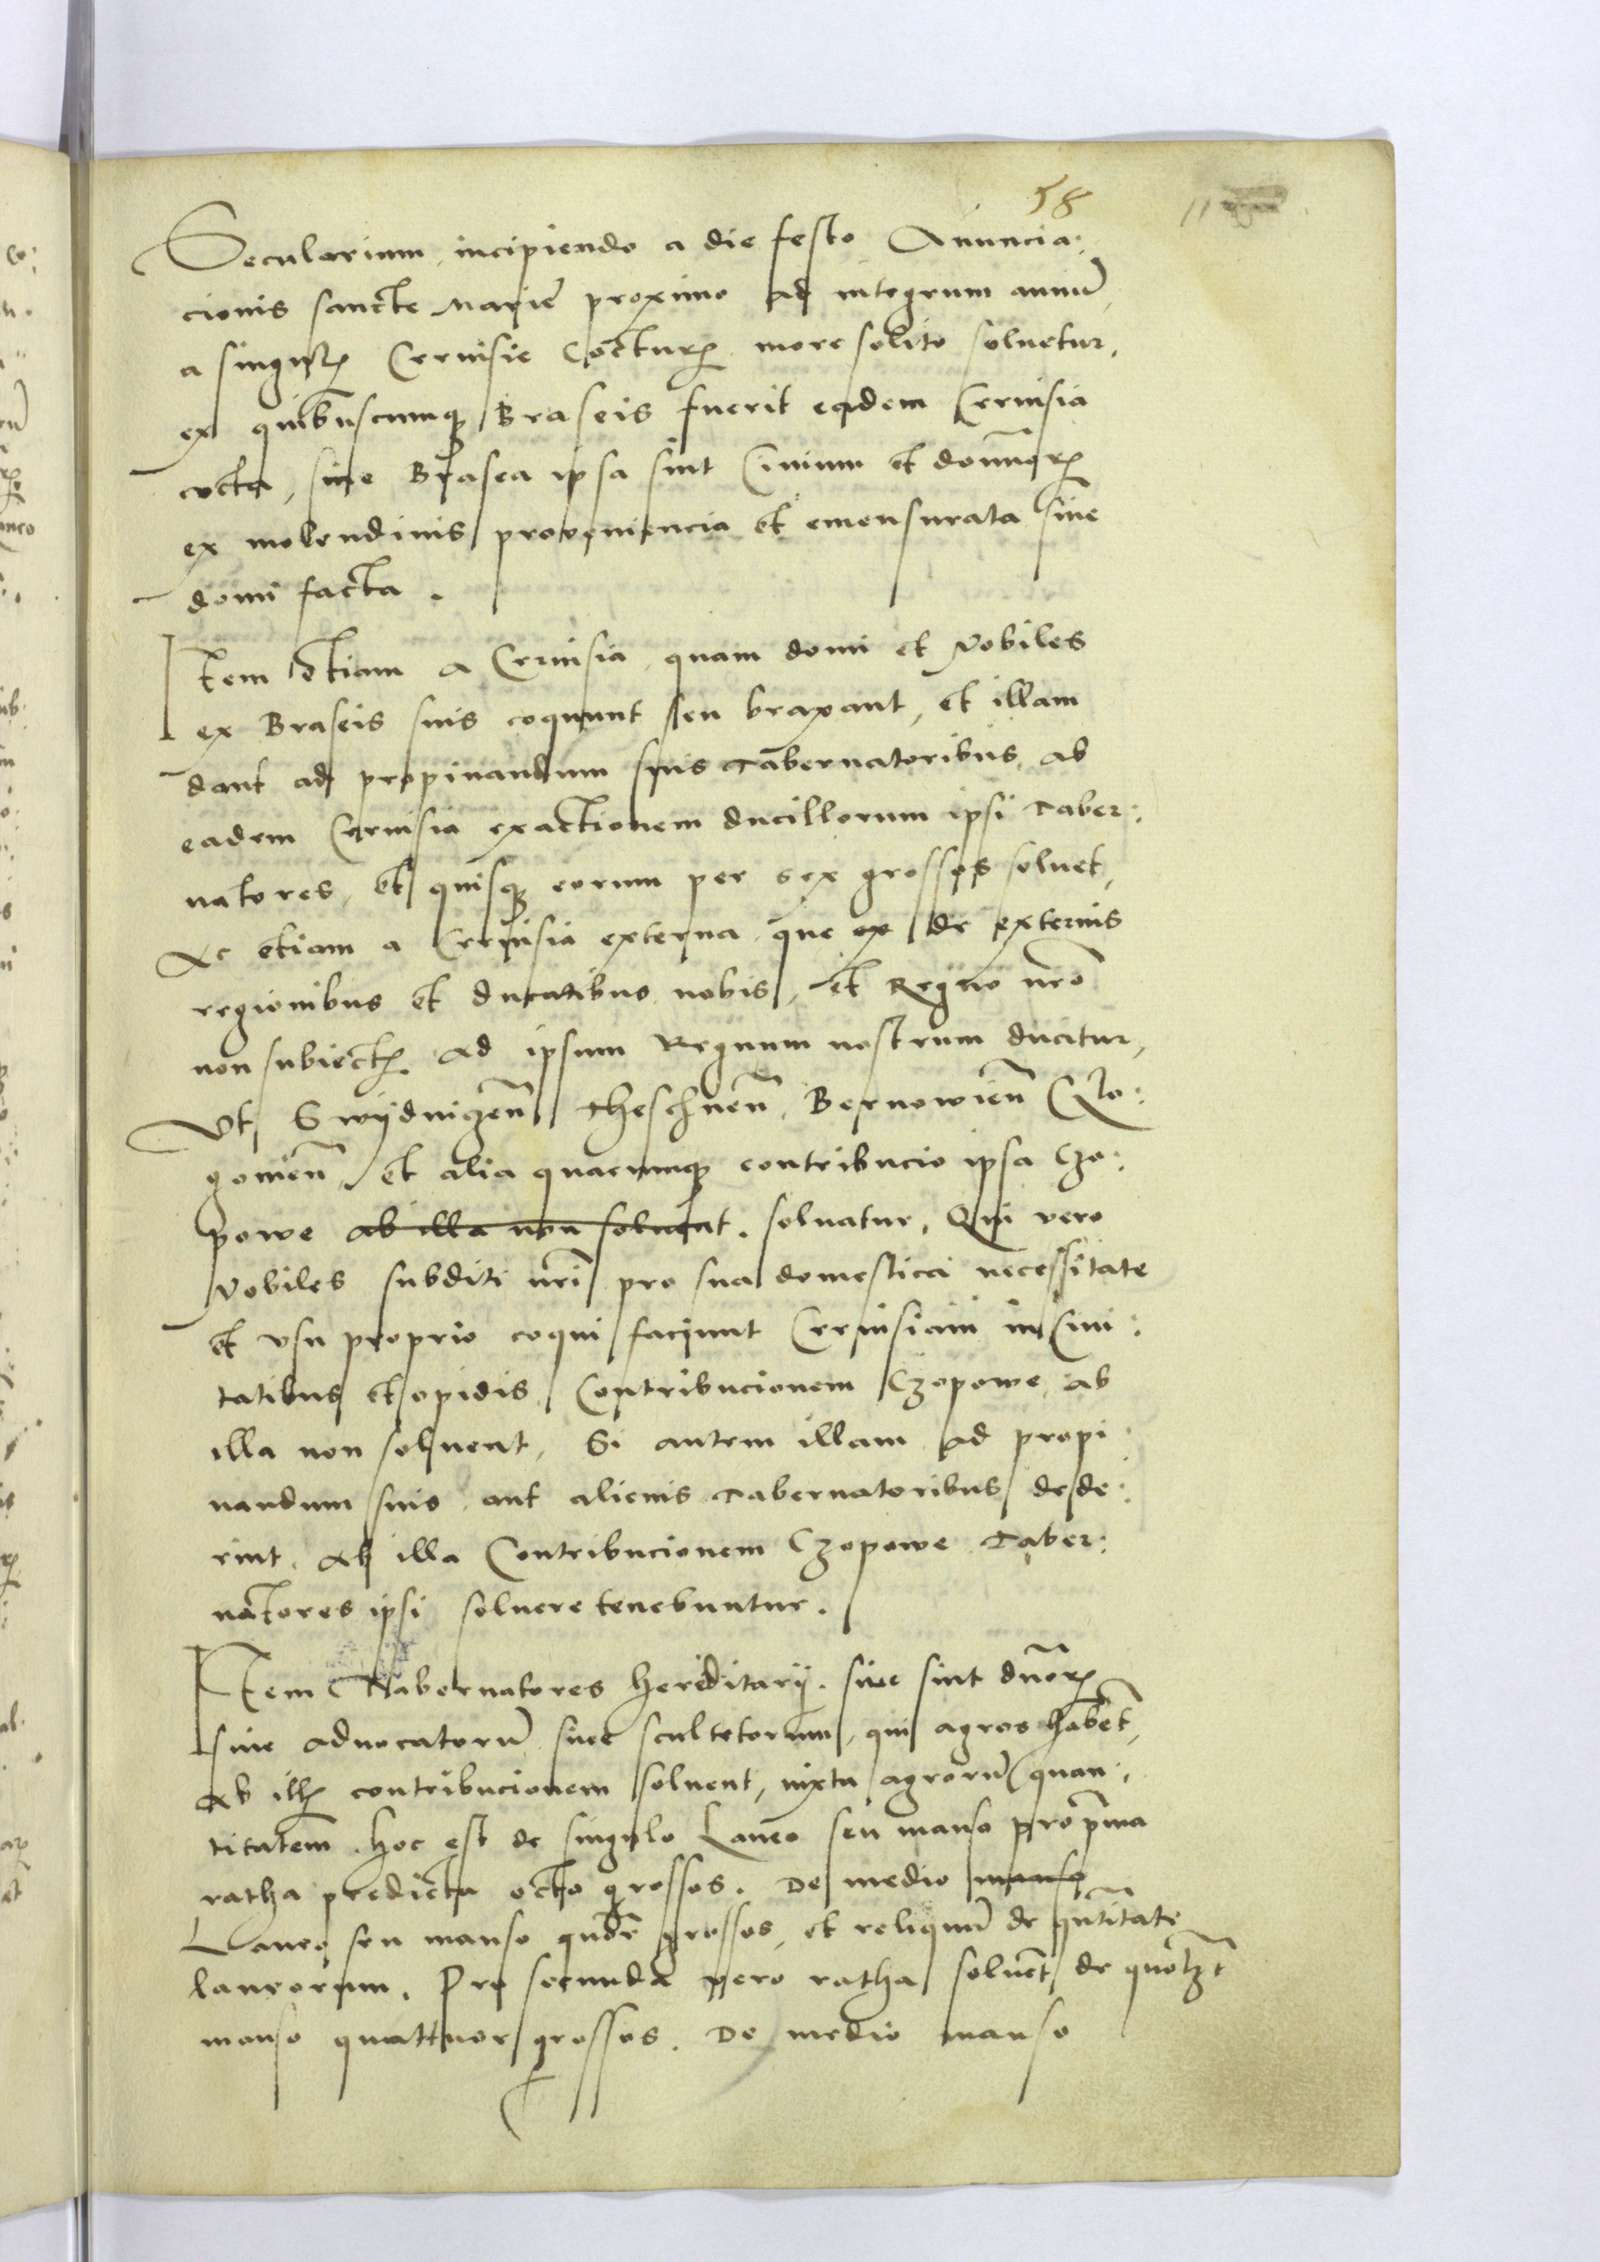 58
11
Secularium, incipiendo a die festo Anuncia:
cionis sancte Marie proximo ad integrum annū,
a singulꝝ Cervisie Cocturꝝ more solito soluetur,
ex quibuscumqꝫ Braseis fuerit eadem Cervisia
cocta, siue Brasea ipsa sint Ciuium et domīorꝝ
ex molendinis proveniencia et emensurata siue
domi facta.
Item etiam a Cervisia, quam domi et Nobiles
ex Braseis suis coquunt seu braxant, et illam
dant ad propinandum suis Tabernatoribus, ab
eadem Cervisia exactionem ducillorum ipsi Taber:
natores, et quisqꝫ eorum per sex grossos soluet,
Ac etiam a Cervisia externa que ex de externis
regionibus et ducatibus nobis, et Regno nrō
non subiectꝫ. Ad ipsum Regnum nostrum ducitur,
Vt, Swÿdnicżeñ Theschneñ, Bernowieñ Glo:
gouieñ, et alia quacumqꝫ contribucio ipsa Czo:
powe ab illa non soluent. soluatur, Qui vero
Nobiles subditi nrī pro sua domestica necessitate
et vsu proprio coqui faciunt Cervisiam in Ciui:
tatibus et opidis, Contribucionem Czopowe, ab
illa non soluent, Si autem illam ad propi:
nandum suis, aut alienis Tabernatoribus dede:
rint. Ab illa Contribucionem Czopowe Taber:
natores ipsi soluere tenebuntur.
Item Tabernatores hereditarij. siue sint dnōrꝝ
siue aduocatorū siue scultetorum, qui agros habēt,
Ab illꝫ contribucionem soluent, iuxta agrorū quan:
titatem. hoc est de singulo Laneo seu manso pro pīma
ratha predicta octo grossos. De medio manso
Laneo seu manso qudē grossos, et reliquū de qntītate
laneorum. Pro secunda vero ratha soluēt de quołzt
manso quattuor grossos. De medio manso